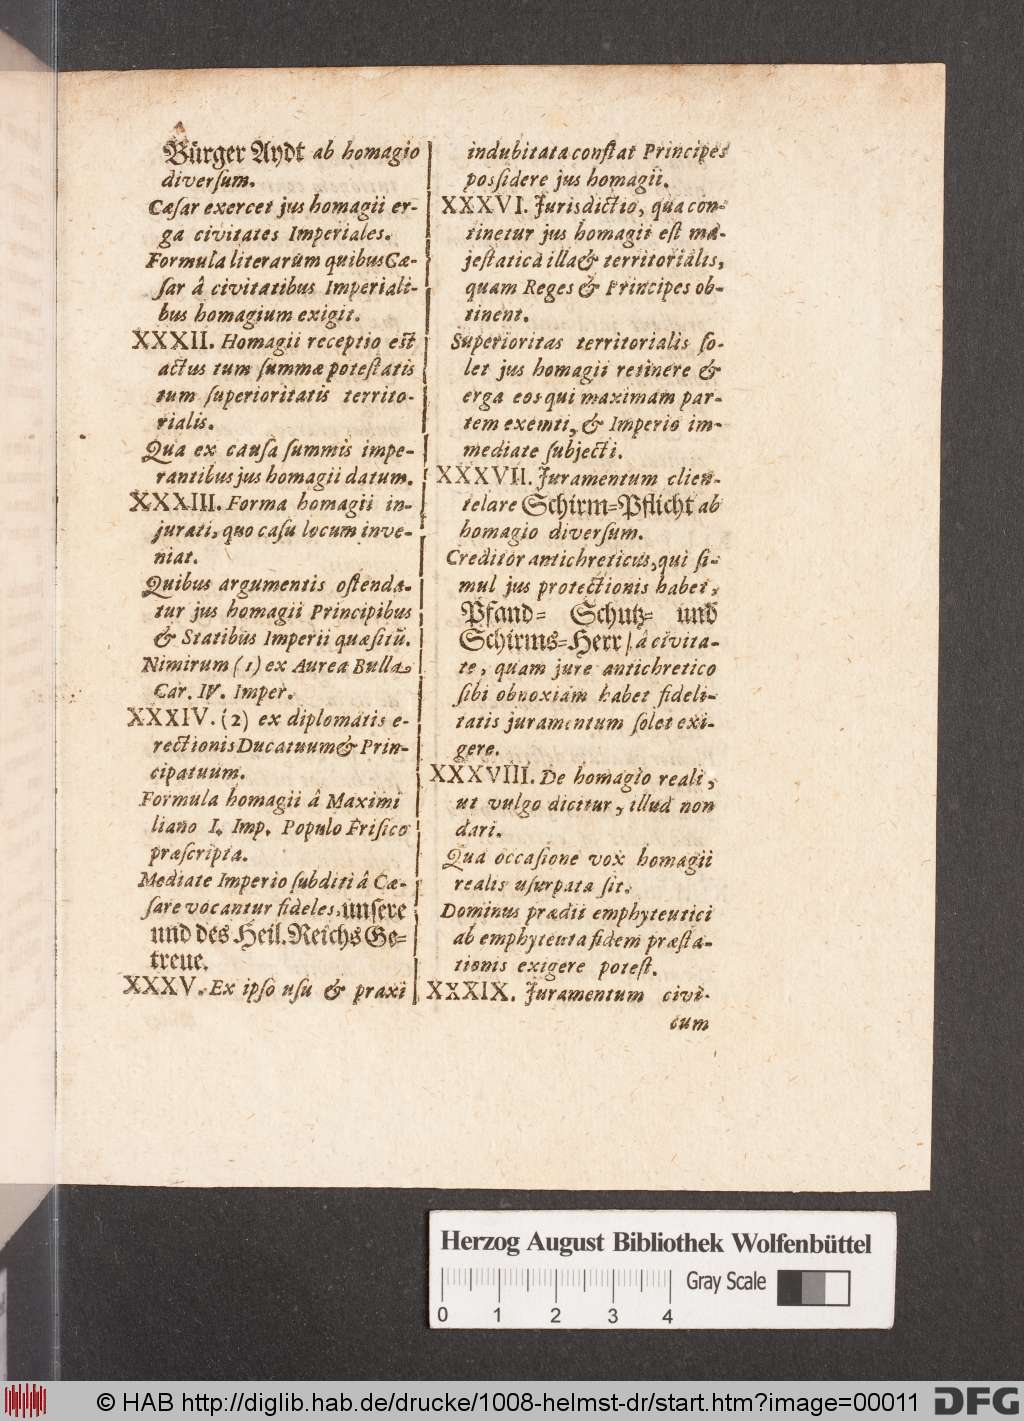 Bürger Aydt ab homagio
diversum.
Cæsar exercet jus homagii er-
ga civitates Imperiales.
Formula literarum quibus Cæ-
sar â civitatibus Imperiali-
bus homagium exigit.
XXXII. Homagii receptio est
actus tum summæ potestatis
tum superioritatis territo-
rialis.
Qua ex causa summis impe-
rantibus jus homagii datum.
XXXIII. Forma homagii in-
jurati, quo casu locum inve-
niat.
Quibus argumentis ostenda-
tur jus homagii Principibus
& Statibus Imperii quæsitū.
Nimirum (1) ex Aurea Bulla
Car. IV. Imper.
XXXIV. (2) ex diplomatis e-
rectionis Ducatuum & Prin-
cipatuum.
Formula homagii â Maximi
liano I. Imp. Populo Frisico
præscripta.
Mediate Imperio subditi â Cæ-
sare vocantur fideles, unsere
und des Heil. Reichs Ge-
treue.
XXXV. Ex ipso usu & praxi
indubitata constat Principes
possidere jus homagii.
XXXVI. Jurisdictio, qua con-
tinetur jus homagii est ma-
jestatica illa & territorialis,
quam Reges & Principes ob-
tinent.
Superioritas territorialis so-
let jus homagii retinere &
erga eos qui maximam par-
tem exemti, & Imperio im-
mediate subjecti.
XXXVII. Juramentum clien-
telare Schirm-Pflicht ab
homagio diversum.
Creditor antichreticus, qui si-
mul jus protectionis habet,
Pfand- Schutz- und
Schirms-Herr / â civita-
te, quam jure antichretico
sibi obnoxiam habet fideli-
tatis juramentum solet exi-
gere.
XXXVIII. De homagio reali,
ut vulgo dicitur, illud non
dari.
Qua occasione vox homagii
realis usurpata sit.
Dominus prædii emphyteutici
ab emphyteuta fidem præsta-
tionis exigere potest.
XXXIX. Juramentum civi-
cum
Herzog August Bibliothek Wolfenbüttel
Gray Scale
0 1 2 3 4
© HAB http://diglib.hab.de/drucke/1008-helmst-dr/start.htm?image=00011
DFG